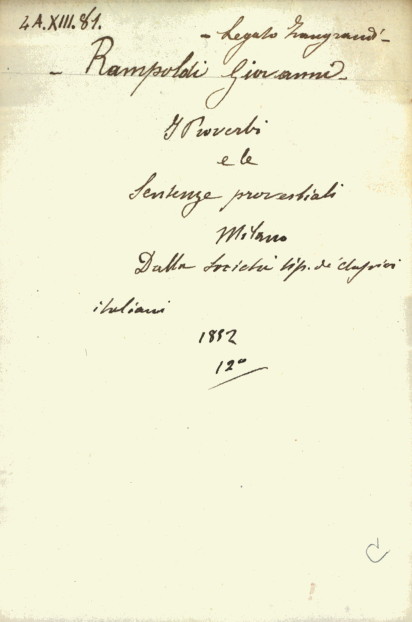 4A.XIII.81.
- Legato Zangrandi -
- Rampoldi Giovanni -
I Proverbi
e le
Sentenze proverbiali
Milano
Dalla Società tip. de' classici
italiani
1852
12°
C